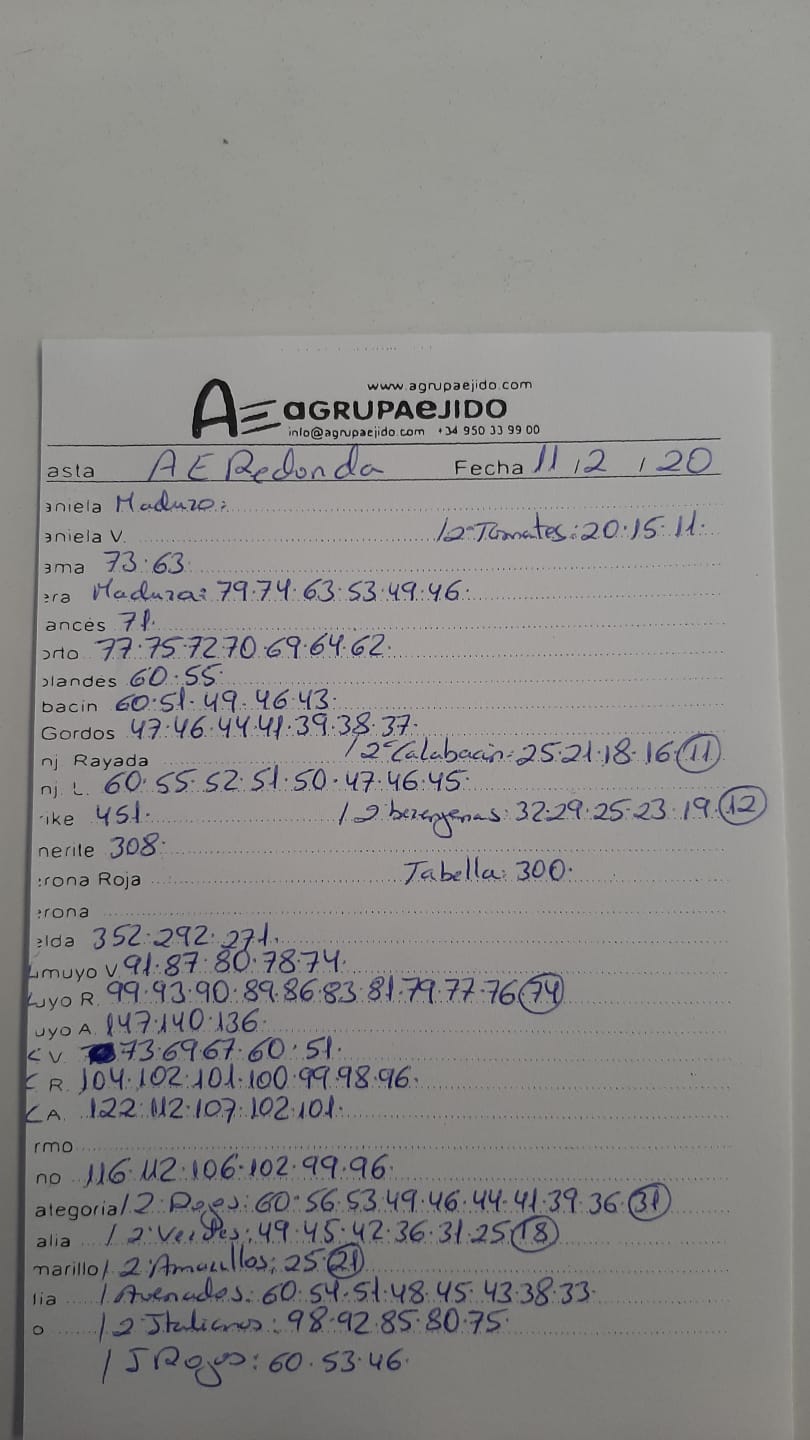 www.agrupaejido.com
AE aGRUPAeJIDO
info@agrupaejido.com +34 950 33 99 00
asta AE Redonda Fecha 11/2/20
aniela Maduro:
aniela V. /2ª Tomates: 20.15.11.
ama 73.63
era Madura: 79.74.63.53.49.46.
ancés 71.
orto 77.75.72.70.69.64.62.
olandes 60.55.
bacin 60.51.49.46.43.
Gordos 47.46.44.41.39.38.37.
nj Rayada /2ª Calabacin: 25.21.18.16.(11)
nj. L. 60.55.52.51.50.47.46.45.
rike 451. /2 berengenas: 32.29.25.23.19.(12)
nerite 308.
erona Roja Tabella: 300.
erona
elda 352.292.271.
umuyo V 91.87.80.78.74.
uyo R. 99.93.90.89.86.83.81.79.77.76(74)
uyo A. 147.140.136.
C V. 73.69.67.60.51.
C R. 104.102.101.100.99.98.96.
C A. 122.112.107.102.101.
rmo
no 116.112.106.102.99.96.
ategoria /2ª Rojos: 60.56.53.49.46.44.41.39.36.(31)
alia /2ª Verdes: 49.45.42.36.31.25(18)
marillo /2ª Amarillos: 25.(21)
lia /Asurados: 60.54.51.48.45.43.38.33.
o /2 Italianos: 98.92.85.80.75.
/ J Rojos: 60.53.46.